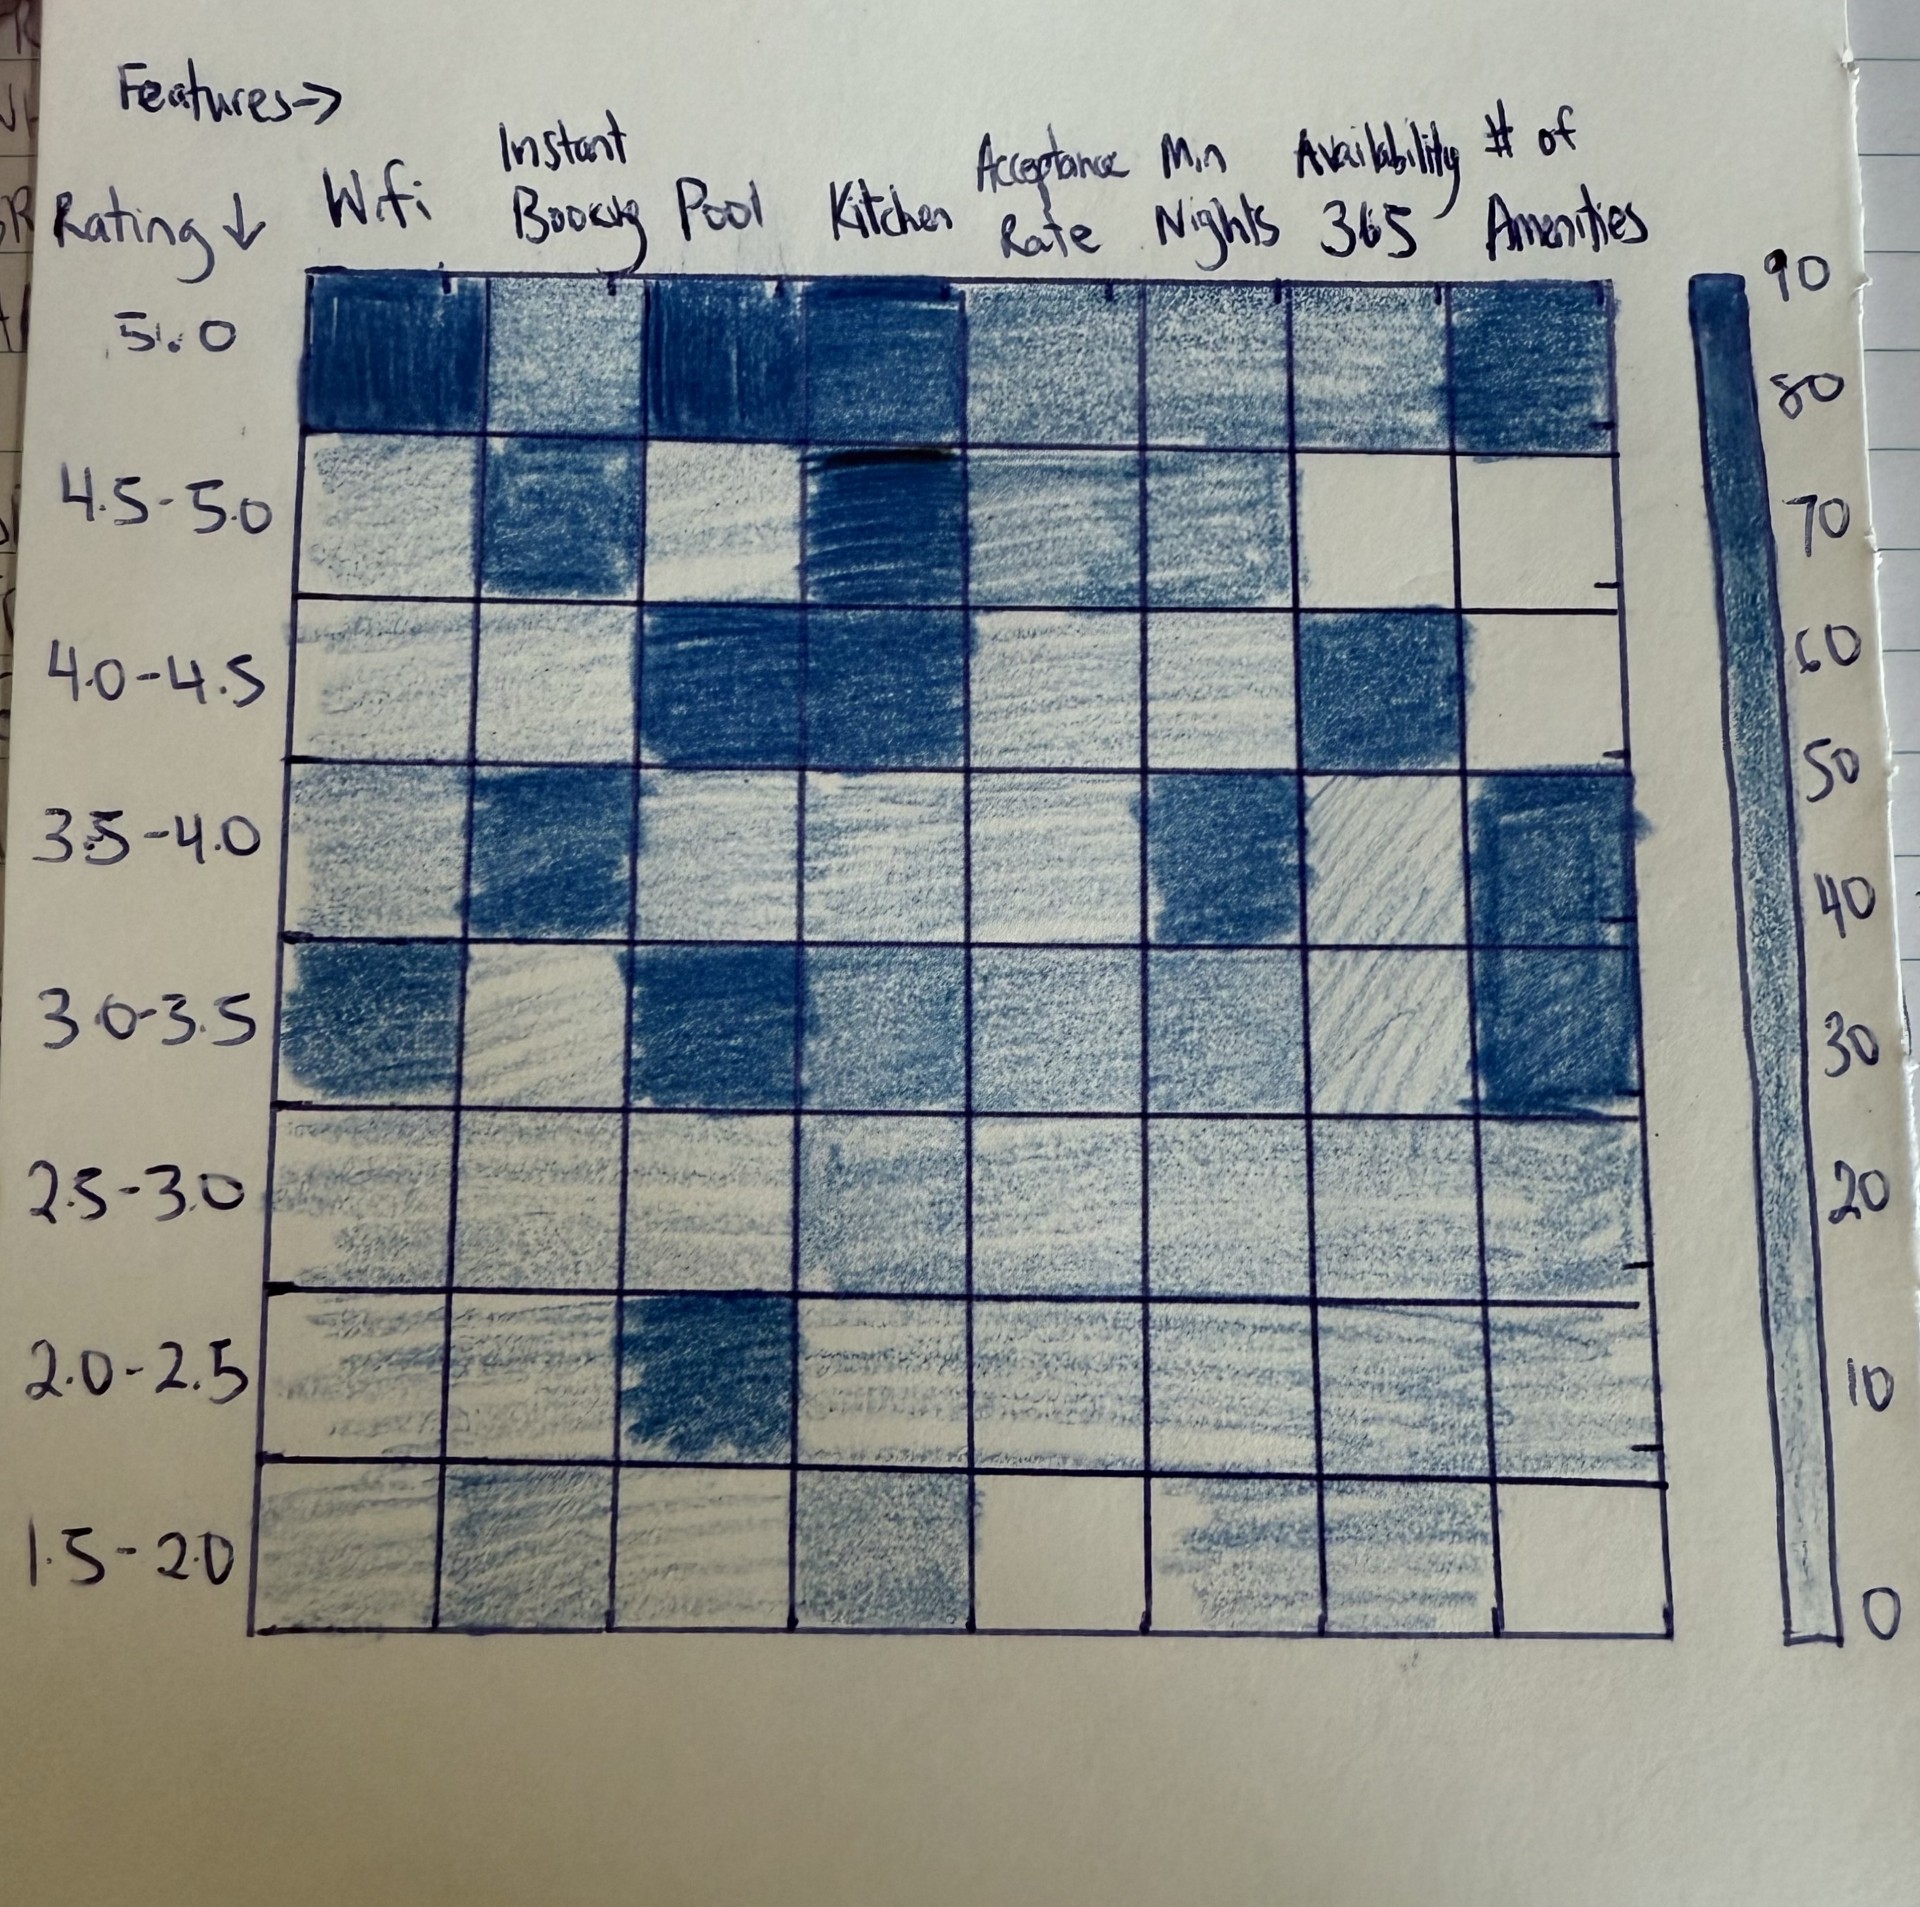 Features->
Rating ↓
Wifi
Instant
Booking
Pool
Kitchen
Acceptance
Rate
Min
Nights
Availability
365
# of
Amenities
5.0
4.5-5.0
4.0-4.5
3.5-4.0
3.0-3.5
2.5-3.0
2.0-2.5
1.5-2.0
90
80
70
60
50
40
30
20
10
0